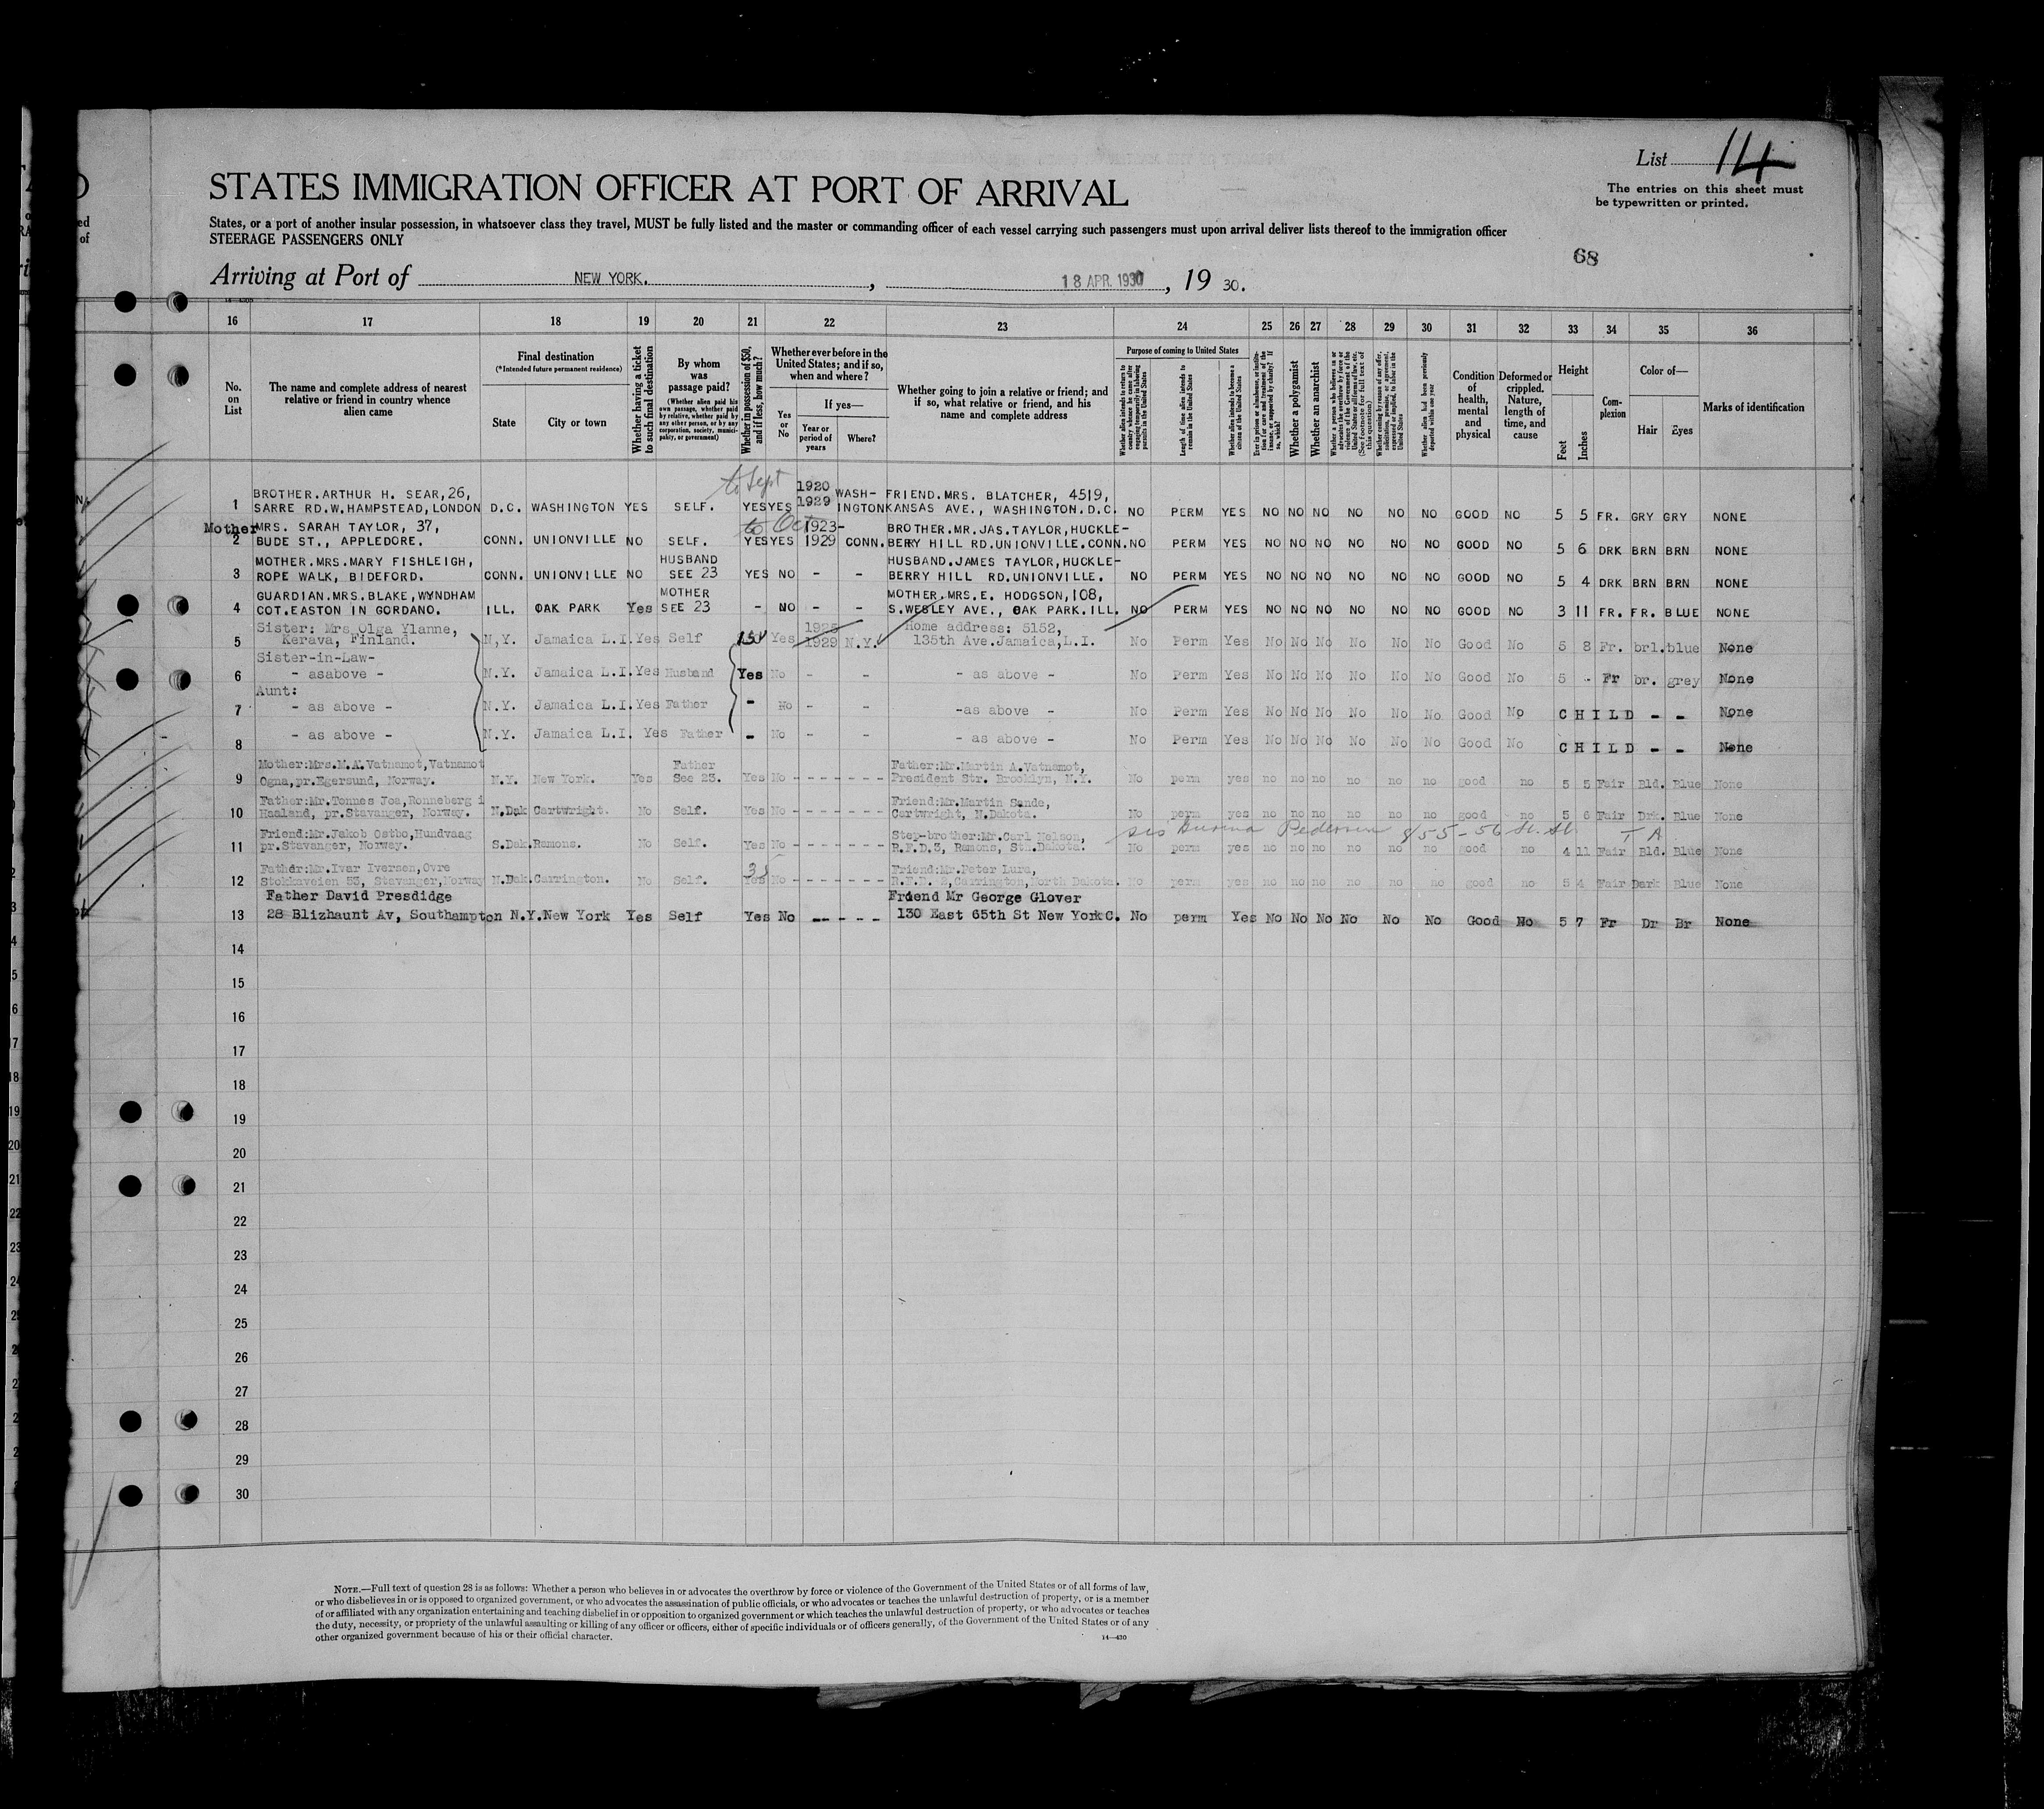 List 14
The entries on this sheet must
be typewritten or printed.
STATES IMMIGRATION OFFICER AT PORT OF ARRIVAL
States, or a port of another insular possession, in whatsoever class they travel, MUST be fully listed and the master or commanding officer of each vessel carrying such passengers must upon arrival deliver lists thereof to the immigration officer
STEERAGE PASSENGERS ONLY
68
Arriving at Port of NEW YORK. , 18 APR. 1930 , 19 30.
16 17 18 19 20 21 22 23 24 25 26 27 28 29 30 31 32 33 34 35 36
No. on List
The name and complete address of nearest relative or friend in country whence alien came
Final destination
(*Intended future permanent residence)
State
City or town
Whether having a ticket to such final destination
By whom was passage paid?
(Whether alien paid his own passage, whether paid by relative, whether paid by any other person, or by any corporation, society, municipality, or government)
Whether in possession of $50, and if less, how much?
Whether ever before in the United States; and if so, when and where?
Yes or No
If yes—
Year or period of years
Where?
Whether going to join a relative or friend; and if so, what relative or friend, and his name and complete address
Purpose of coming to United States
Length of time alien intends to remain in the United States
Whether alien intends to become a citizen of the United States
Whether a polygamist
Whether an anarchist
Whether alien had been previously deported within one year
Condition of health, mental and physical
Deformed or crippled. Nature, length of time, and cause
Height
Feet
Inches
Complexion
Color of—
Hair
Eyes
Marks of identification
to Sept 1920
BROTHER.ARTHUR H. SEAR,26, 1929 WASH- FRIEND.MRS. BLATCHER, 4519,
1 SARRE RD.W.HAMPSTEAD,LONDON D.C. WASHINGTON YES SELF. YES YES INGTON KANSAS AVE., WASHINGTON.D.C. NO PERM YES NO NO NO NO NO NO GOOD NO 5 5 FR. GRY GRY NONE
Mother MRS. SARAH TAYLOR, 37, to Oct 1923- BROTHER.MR.JAS.TAYLOR,HUCKLE-
2 BUDE ST., APPLEDORE. CONN. UNIONVILLE NO SELF. YES YES 1929 CONN. BERRY HILL RD.UNIONVILLE.CONN. NO PERM YES NO NO NO NO NO NO GOOD NO 5 6 DRK BRN BRN NONE
MOTHER.MRS.MARY FISHLEIGH, HUSBAND HUSBAND.JAMES TAYLOR,HUCKLE-
3 ROPE WALK, BIDEFORD. CONN. UNIONVILLE NO SEE 23 YES NO - - BERRY HILL RD.UNIONVILLE. NO PERM YES NO NO NO NO NO NO GOOD NO 5 4 DRK BRN BRN NONE
GUARDIAN.MRS.BLAKE,WYNDHAM MOTHER MOTHER.MRS.E. HODGSON,108,
4 COT.EASTON IN GORDANO. ILL. OAK PARK Yes SEE 23 - NO - - S.WESLEY AVE., OAK PARK.ILL. NO PERM YES NO NO NO NO NO NO GOOD NO 3 11 FR. FR. BLUE NONE
Sister: Mrs Olga Ylanne, 1925 Home address: 5152,
5 Kerava, Finland. N.Y. Jamaica L.I. Yes Self 150 Yes 1929 N.Y. 135th Ave.Jamaica,L.I. No Perm Yes No No No No No No Good No 5 8 Fr. brl. blue None
Sister-in-Law-
6 - asabove - N.Y. Jamaica L.I. Yes Husband Yes No - - - as above - No Perm Yes No No No No No No Good No 5 - Fr br. grey None
Aunt:
7 - as above - N.Y. Jamaica L.I. Yes Father - No - - -as above - No Perm Yes No No No No No No Good No CHILD - - None
8 - as above - N.Y. Jamaica L.I. Yes Father - No - - - as above - No Perm Yes No No No No No No Good No CHILD - - None
Mother:Mrs.M.A.Vatnamot,Vatnamot Father Father:Mr.Martin A.Vatnamot,
9 Ogna,pr.Egersund, Norway. N.Y. New York. Yes See 23. Yes No - - - - - - - President Str. Brooklyn, N.Y. No perm yes no no no no no no good no 5 5 Fair Bld. Blue None
Father:Mr.Tonnes Joa,Ronneberg i Friend:Mr.Martin Sande,
10 Haaland, pr.Stavanger, Norway. N.Dak Cartwright. No Self. Yes No - - - - - - - Cartwright, N.Dakota. No perm yes no no no no no no good no 5 6 Fair Drk. Blue None
sis Pedersen 855-56 St. T A
Friend:Mr.Jakob Ostbo,Hundvaag Step-brother:Mr.Carl Nelson,
11 pr.Stavanger, Norway. S.Dak. Ramona. No Self. Yes No - - - - - - - R.F.D.3, Ramona, Sth.Dakota. No perm yes no no no no no no good no 4 11 Fair Bld. Blue None
Father:Mr.Ivar Iversen,Ovre 35 Friend:Mr.Peter Lura,
12 Stokkaveien 53, Stavanger,Norway N.Dak. Carrington. No Self. Yes No - - - - - - - R.F.D. 2,Carrington,North Dakota. No perm yes no no no no no no good no 5 4 Fair Dark Blue None
Father David Presdidge Friend Mr George Glover
13 28 Blizhaunt Av, Southampton N.Y. New York Yes Self Yes No - - - - - 130 East 65th St New York C. No perm Yes No No No No No No Good No 5 7 Fr Dr Br None
14
15
16
17
18
19
20
21
22
23
24
25
26
27
28
29
30
NOTE.—Full text of question 28 is as follows: Whether a person who believes in or advocates the overthrow by force or violence of the Government of the United States or of all forms of law,
or who disbelieves in or is opposed to organized government, or who advocates the assassination of public officials, or who advocates or teaches the unlawful destruction of property, or is a member
of or affiliated with any organization entertaining and teaching disbelief in or opposition to organized government or which teaches the unlawful destruction of property, or who advocates or teaches
the duty, necessity, or propriety of the unlawful assaulting or killing of any officer or officers, either of specific individuals or of officers generally, of the Government of the United States or of any
other organized government because of his or their official character.
14—430